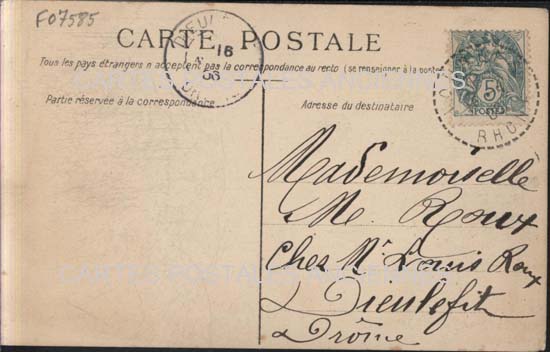 F07585
CARTE POSTALE
Tous les pays étrangers n'acceptent pas la correspondance au recto (se renseigner à la poste)
Partie réservée à la correspondance
Adresse du destinataire
16
08
5
RHÔNE
Mademoiselle
M. Roux
chez Mr Louis Roux
Dieulefit
Drôme